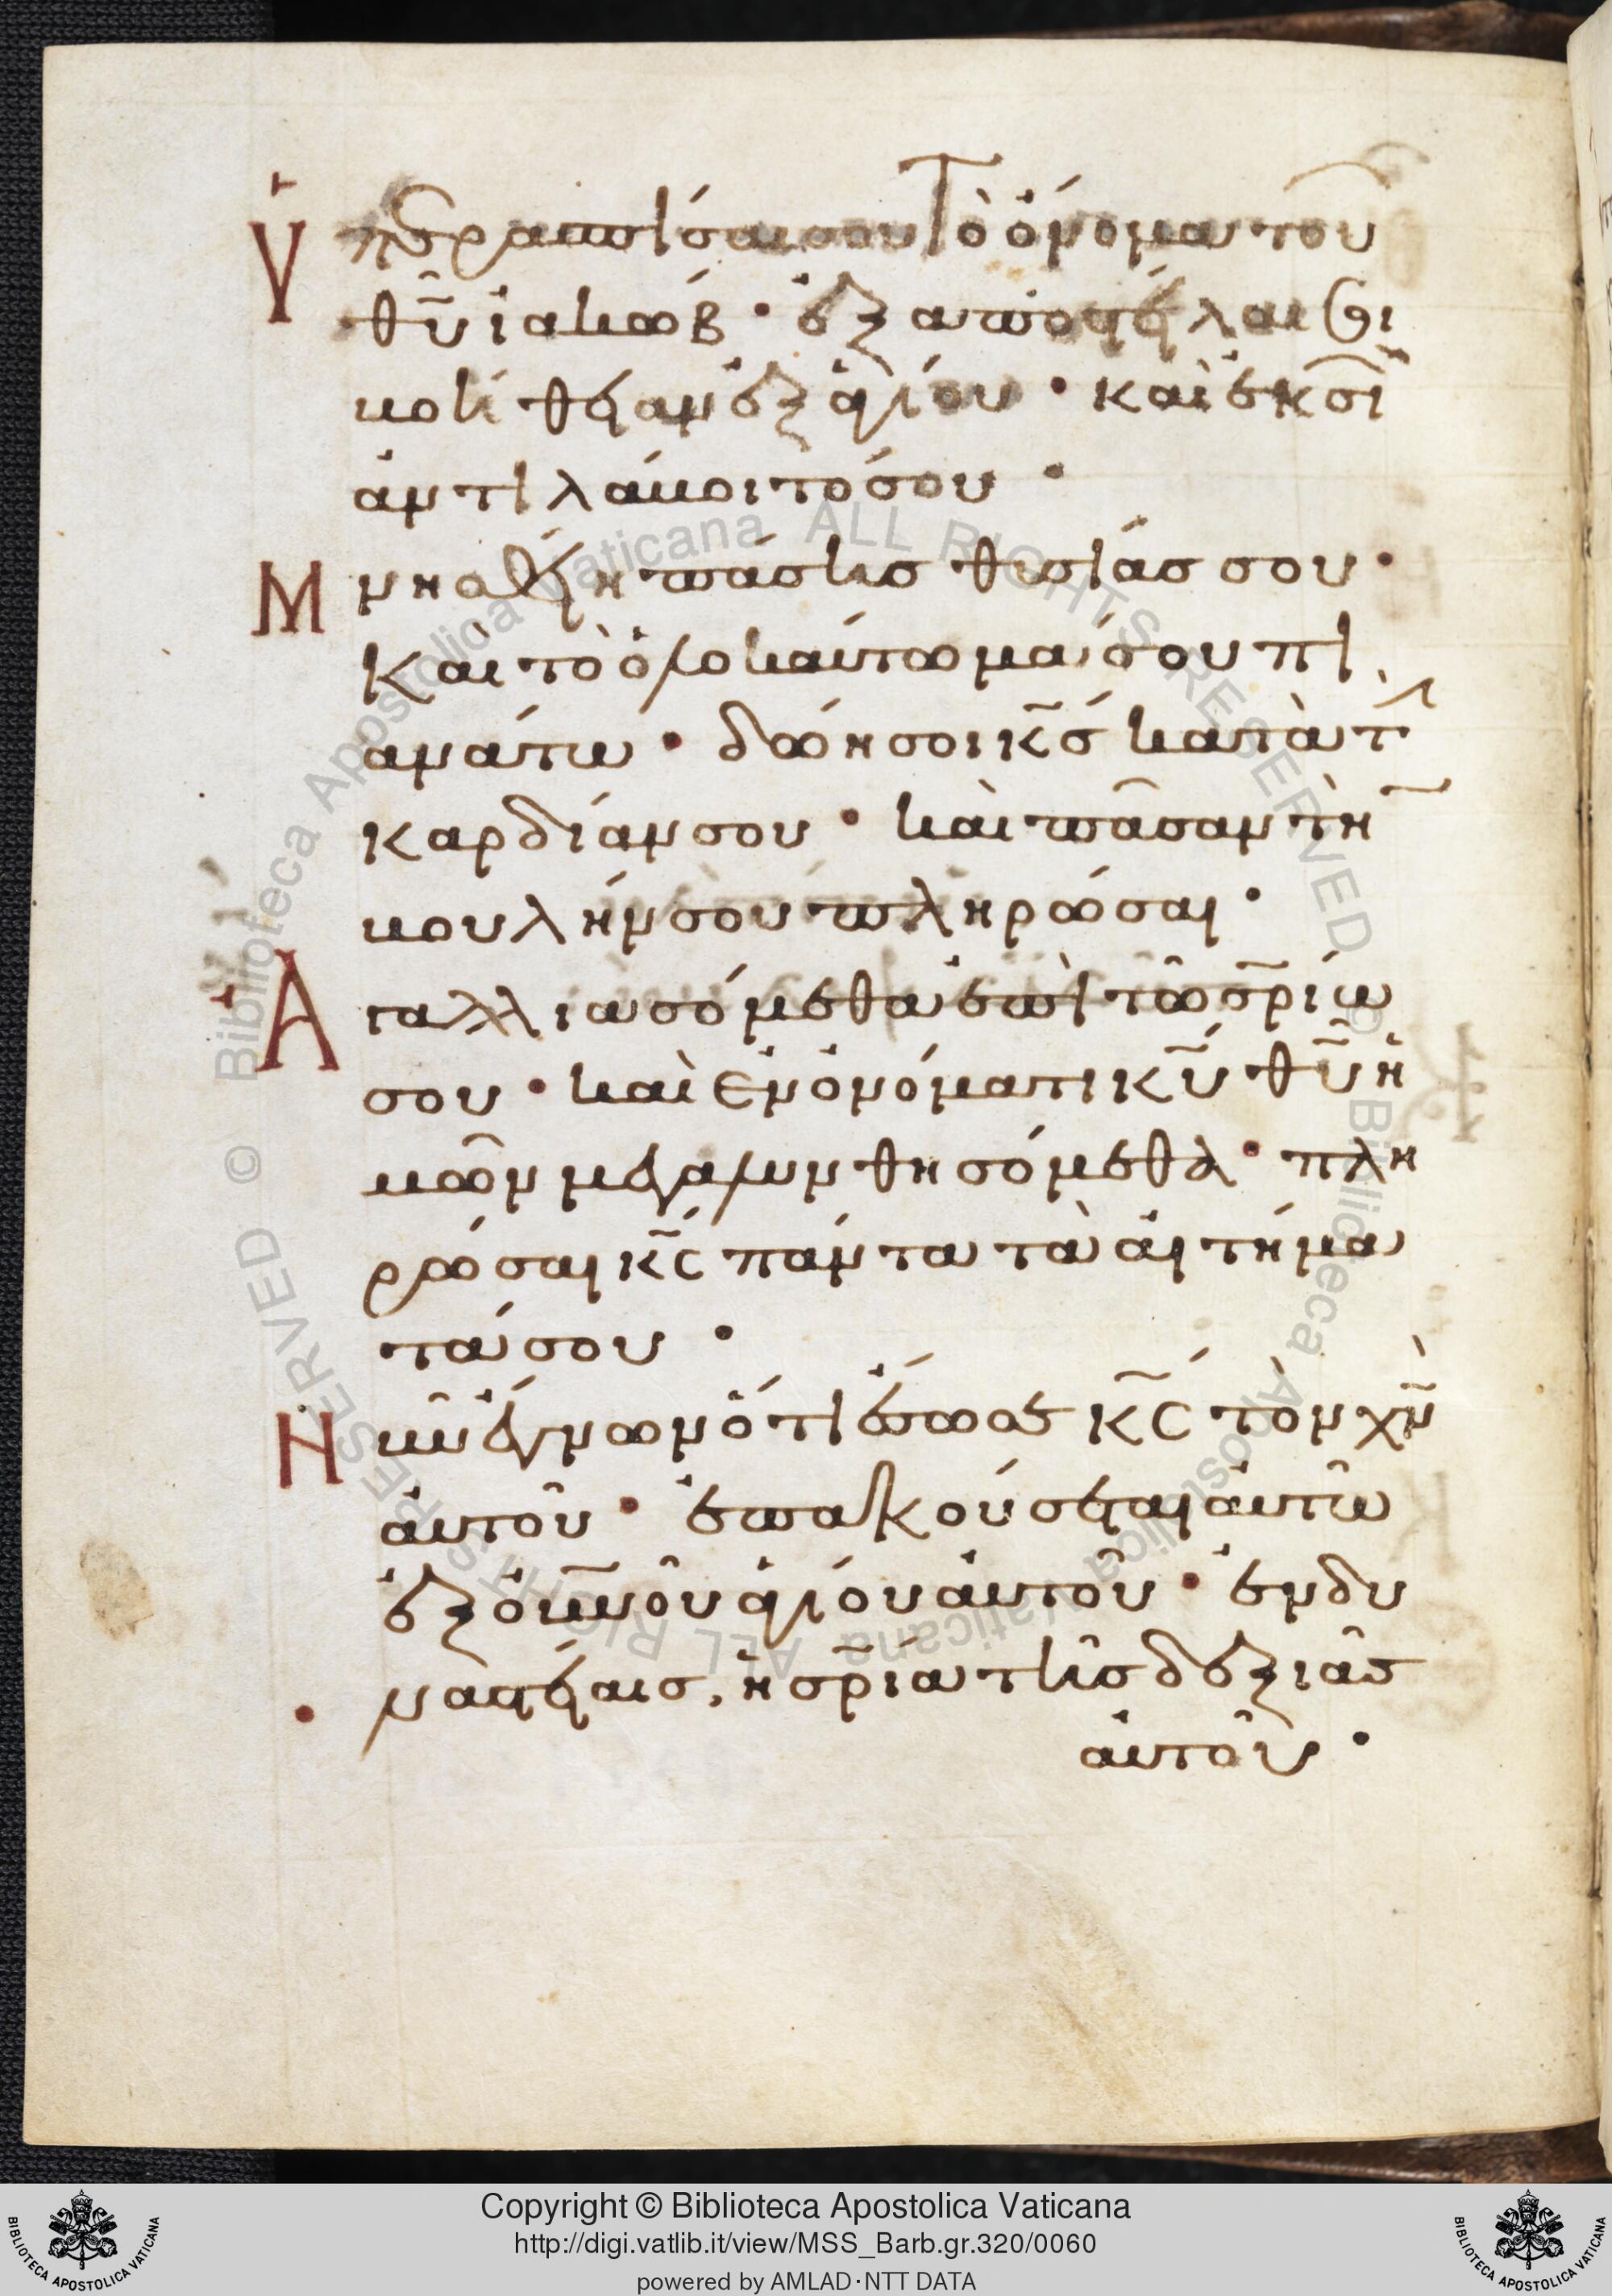 Ὑπερασπίσαι σου τὸ ὄνομα τοῦ
θῦ ἰακώβ · ἐξαποστείλαι σοι
βοήθειαν ἐξ ἁγίου · καὶ ἐκ σιὼ̅
ἀντιλάβοιτό σου ·
Μνησθείη πάσης θυσίας σου ·
Καὶ τὸ ὁλοκαύτωμά σου πι
ανάτω · δώη σοι κ̅ς κατὰ τ̅
καρδίαν σου · καὶ πᾶσαν τὴ̅
βουλήν σου πληρώσαι ·
Ἀγαλλιασόμεθα ἐπὶ τῶ σ̅ρίω
σου · καὶ ἐν ὀνόματι κ̅υ θ̅υ ἡ
μῶν μεγαλυνθησόμεθα · πλη
ρώσαι κ̅ς πάντα τὰ αἰτήμα
τά σου ·
Νῦν ἔγνων ὅτι ἔσωσε κ̅ς τὸν χ̅ν
αὐτοῦ · ἐπακούσεται αὐτῶ
ἐξ ο̅υ̅ν̅οῦ ἁγίου αὐτοῦ · ἐν δυ
ναστείαις, ἡ σ̅ρία τῆς δεξιᾶς
αὐτοῦ ·
Biblioteca Apostolica Vaticana ALL RIGHTS RESERVED ©
Copyright © Biblioteca Apostolica Vaticana
http://digi.vatlib.it/view/MSS_Barb.gr.320/0060
powered by AMLAD·NTT DATA
BIBLIOTECA APOSTOLICA VATICANA
BIBLIOTECA APOSTOLICA VATICANA